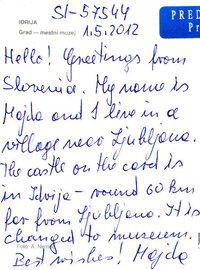 SI-57544
IDRIJA
Grad – mestni muzej
1.5.2012
PRED
Pr
Hello! Greetings from
Slovenia. My name is
Majda and I live in a
village near Ljubljana.
The castle on the card is
in Idrija - round 60 km
far from Ljubljana. It is
changed to museum.
Foto: A.
Best wishes! Majda